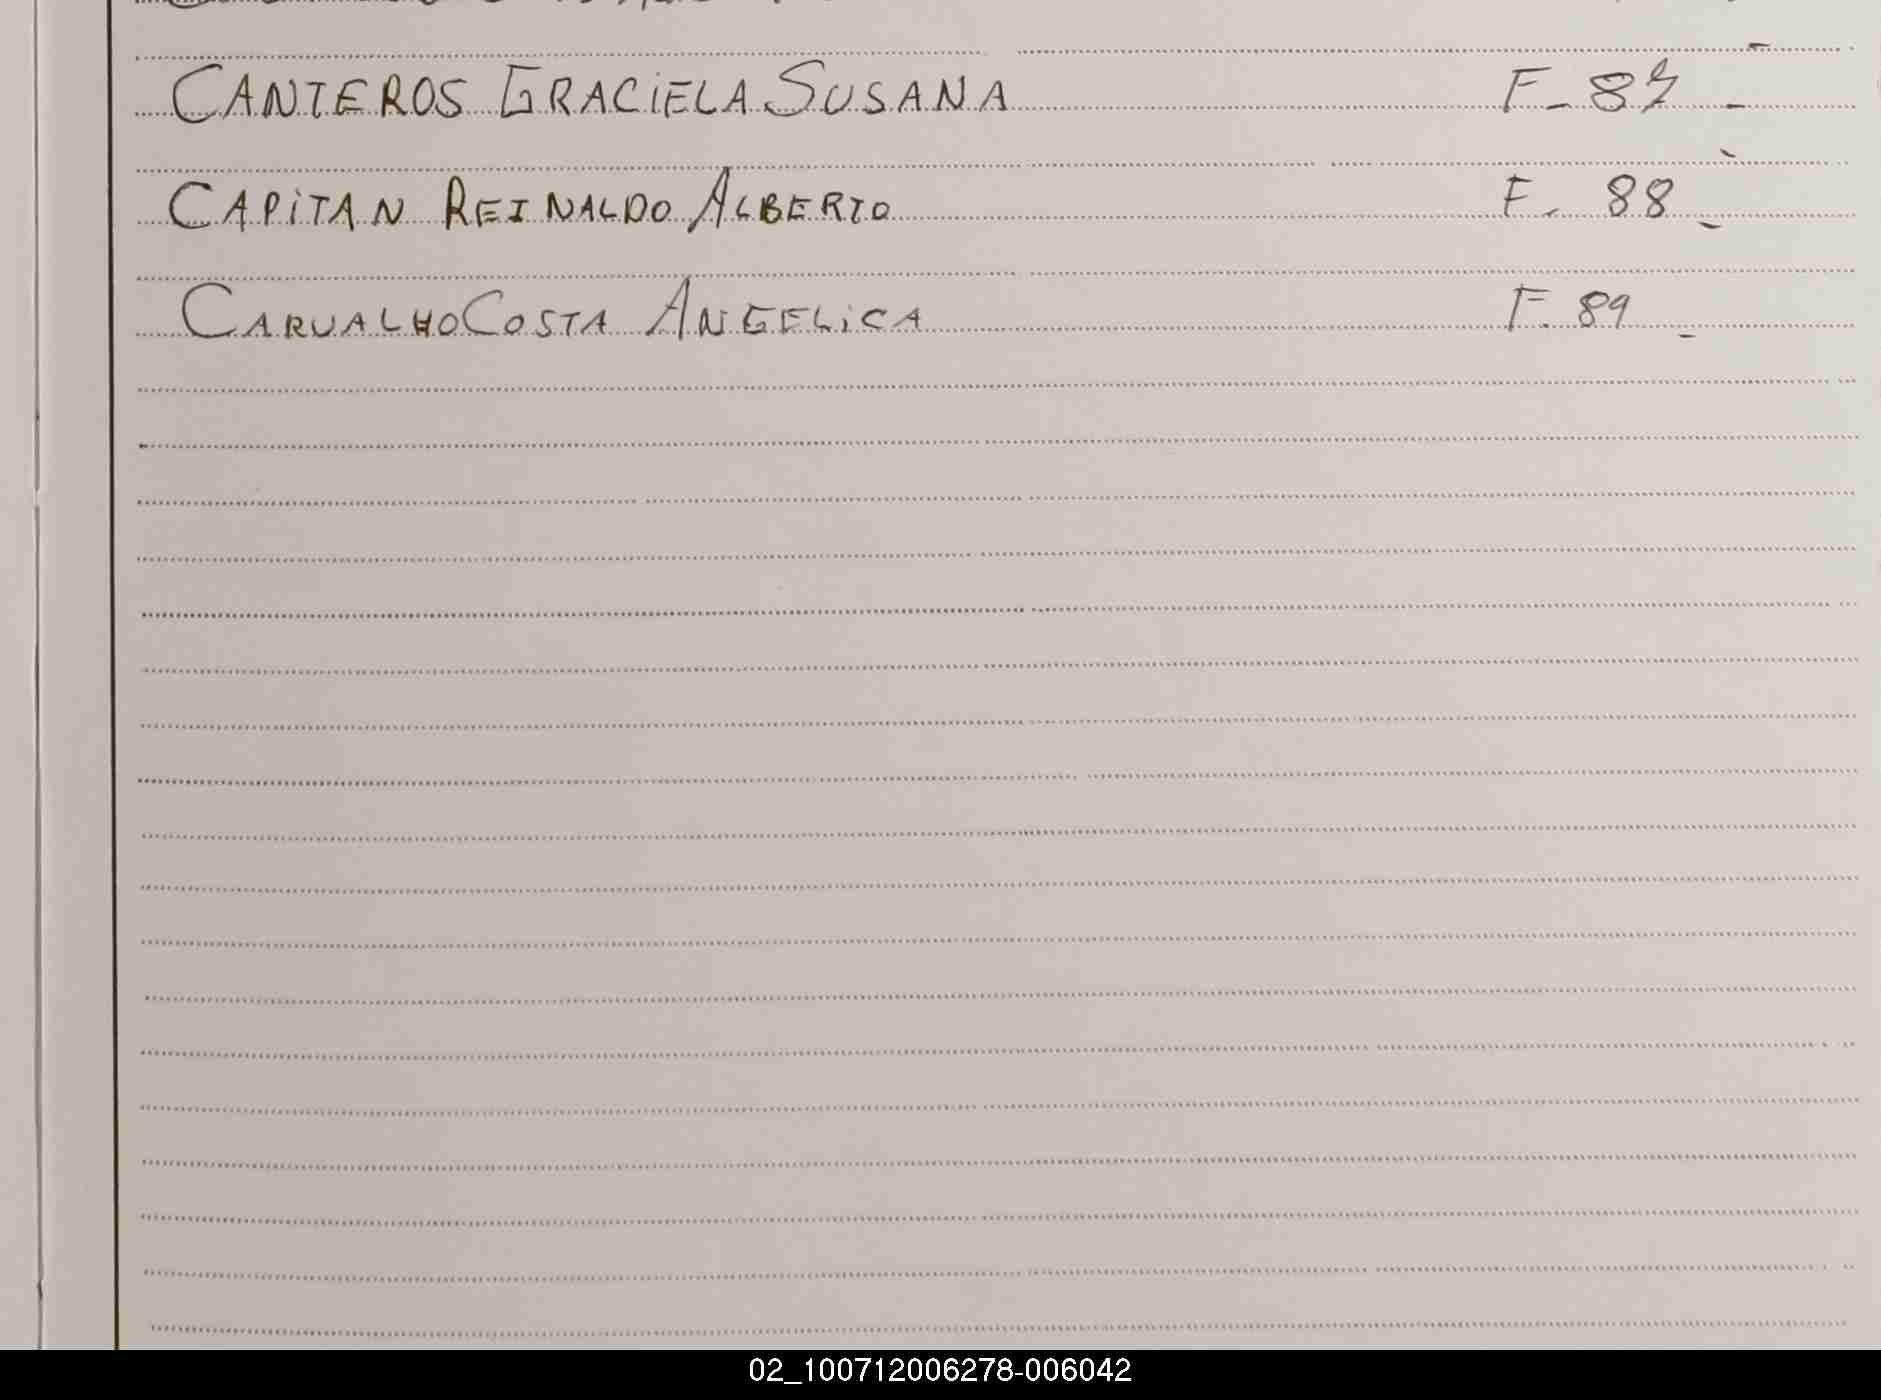 CANTEROS GRACIELA SUSANA F- 87 -
CAPITAN REINALDO ALBERTO F. 88 -
CARVALHO COSTA ANGELICA F. 89 -
02_100712006278-006042